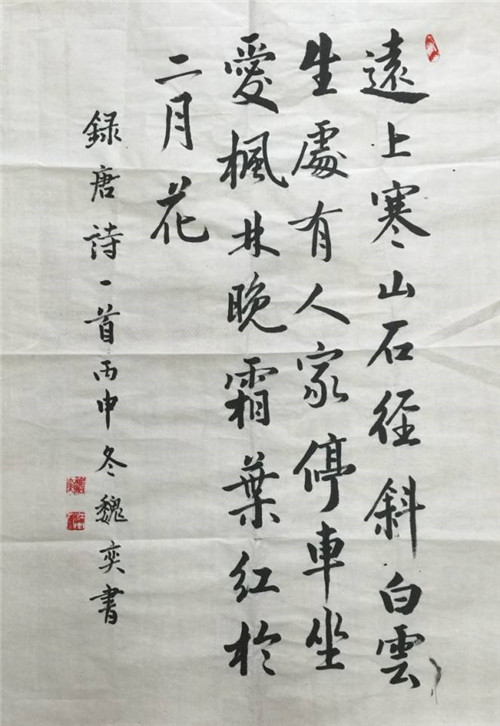 遠上寒山石径斜白雲
生處有人家停車坐
愛楓林晚霜葉红於
二月花
録唐詩一首丙申冬魏奕書